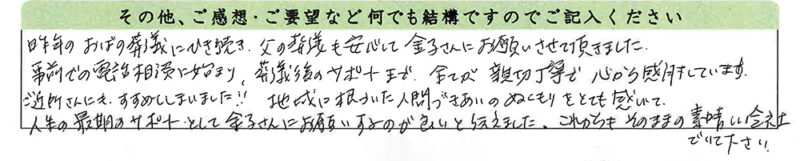 その他、ご感想・ご要望など何でも結構ですのでご記入ください
昨年のおばの葬儀にひき続き、父の葬儀も安心して金子さんにお願いさせて頂きました。
事前での電話相談に始まり、葬儀後のサポートまで、全てが親切丁寧で心から感謝しています。
ご近所さんにも、すすめてしまいました!! 地域に根づいた人間づきあいのぬくもりをとても感いて、
人生の最期のサポートとして金子さんにお願いするのが良いと伝えました。これからもそのままの素晴しい会社
でいて下さい